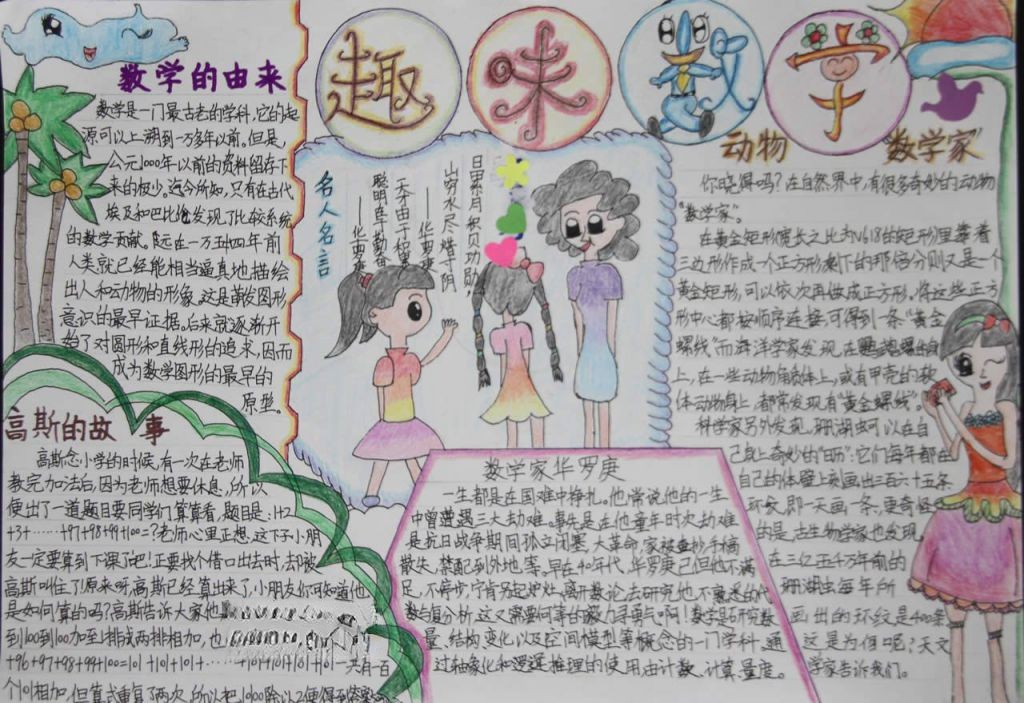 趣味数学
数学的由来
数学是一门最古老的学科,它的起
源可以上溯到一万多年以前。但是,
公元1000年以前的资料留存下
来的极少。迄今所知,只有在古代
埃及和巴比伦发现了比较系统
的数学贡献。远在一万五四年前
人类就已经能相当逼真地描绘
出人和动物的形象。这是萌发图形
意识的最早证据。后来就逐渐开
始了对圆形和直线形的追求,因而
成为数学图形的最早的
原型。
高斯的故事
高斯念小学的时候,有一次在老师
教完加法后,因为老师想要休息,所以
便出了一道题目要同学们算算看,题目是:1+2
+3+……+97+98+99+100=?老师心里正想,这下子小朋
友一定要算到下课了吧!正要找个借口出去时,却被
高斯叫住了!原来呀,高斯已经算出来了,小朋友你可知道他
是如何算的吗?高斯告诉大家他
到100到100加至1排成两排相加,也
+96+97+98+99+100=101+101+101+……+101+101+101+101一共有一百
个101相加,但算式重复了两次,所以把10100除以2便得到答案
名人名言
聪明在勤奋
——华罗庚
天才由于积累
——华罗庚
山穷水尽惜寸阴
日累月积见功勋,
数学家华罗庚
一生都是在国难中挣扎。他常说他的一生
中曾遭遇三大劫难。事先是在他童年时次劫难
是抗日战争期间孤立闭塞,大革命,家被查抄手稿
散失,禁配到外地,等。早在40年代,华罗庚已但他不满
足,不停步,宁肯另起炉灶,离开数论去研究他不熟悉的代
数与复分析,这又需要何等的毅力寻勇气啊!数学是研究数
量、结构、变化以及空间模型等概念的一门学科。通
过抽象化和逻辑推理的使用,由计数、计算、量度。
动物“数学家”
你晓得吗?在自然界中,有很多奇妙的动物
“数学家”。
在黄金矩形(宽长之比为0.618的矩形)里靠着
三边形作成一个正方形,剩下的那部分则又是一个
黄金矩形,可以依次再做成正方形,将这些正方
形中心都按顺序连接,可得到一条“黄金
螺线”而海洋学家发现,在鹦鹉螺的身
上,在一些动物角质体上,或有甲壳的软
体动物身上,都常发现有“黄金螺线”。
科学家另外发现,珊湖虫可以在自
己身上奇妙的“日历”:它们每年都在
自己的体壁上刻画出三百六十五条
环纹,即一天画一条,更奇怪
的是,古生物学家也发现,
在三亿五千万年前的
珊湖虫每年所
画出的环纹是400条
这是为何呢?天文
学家告诉我们。